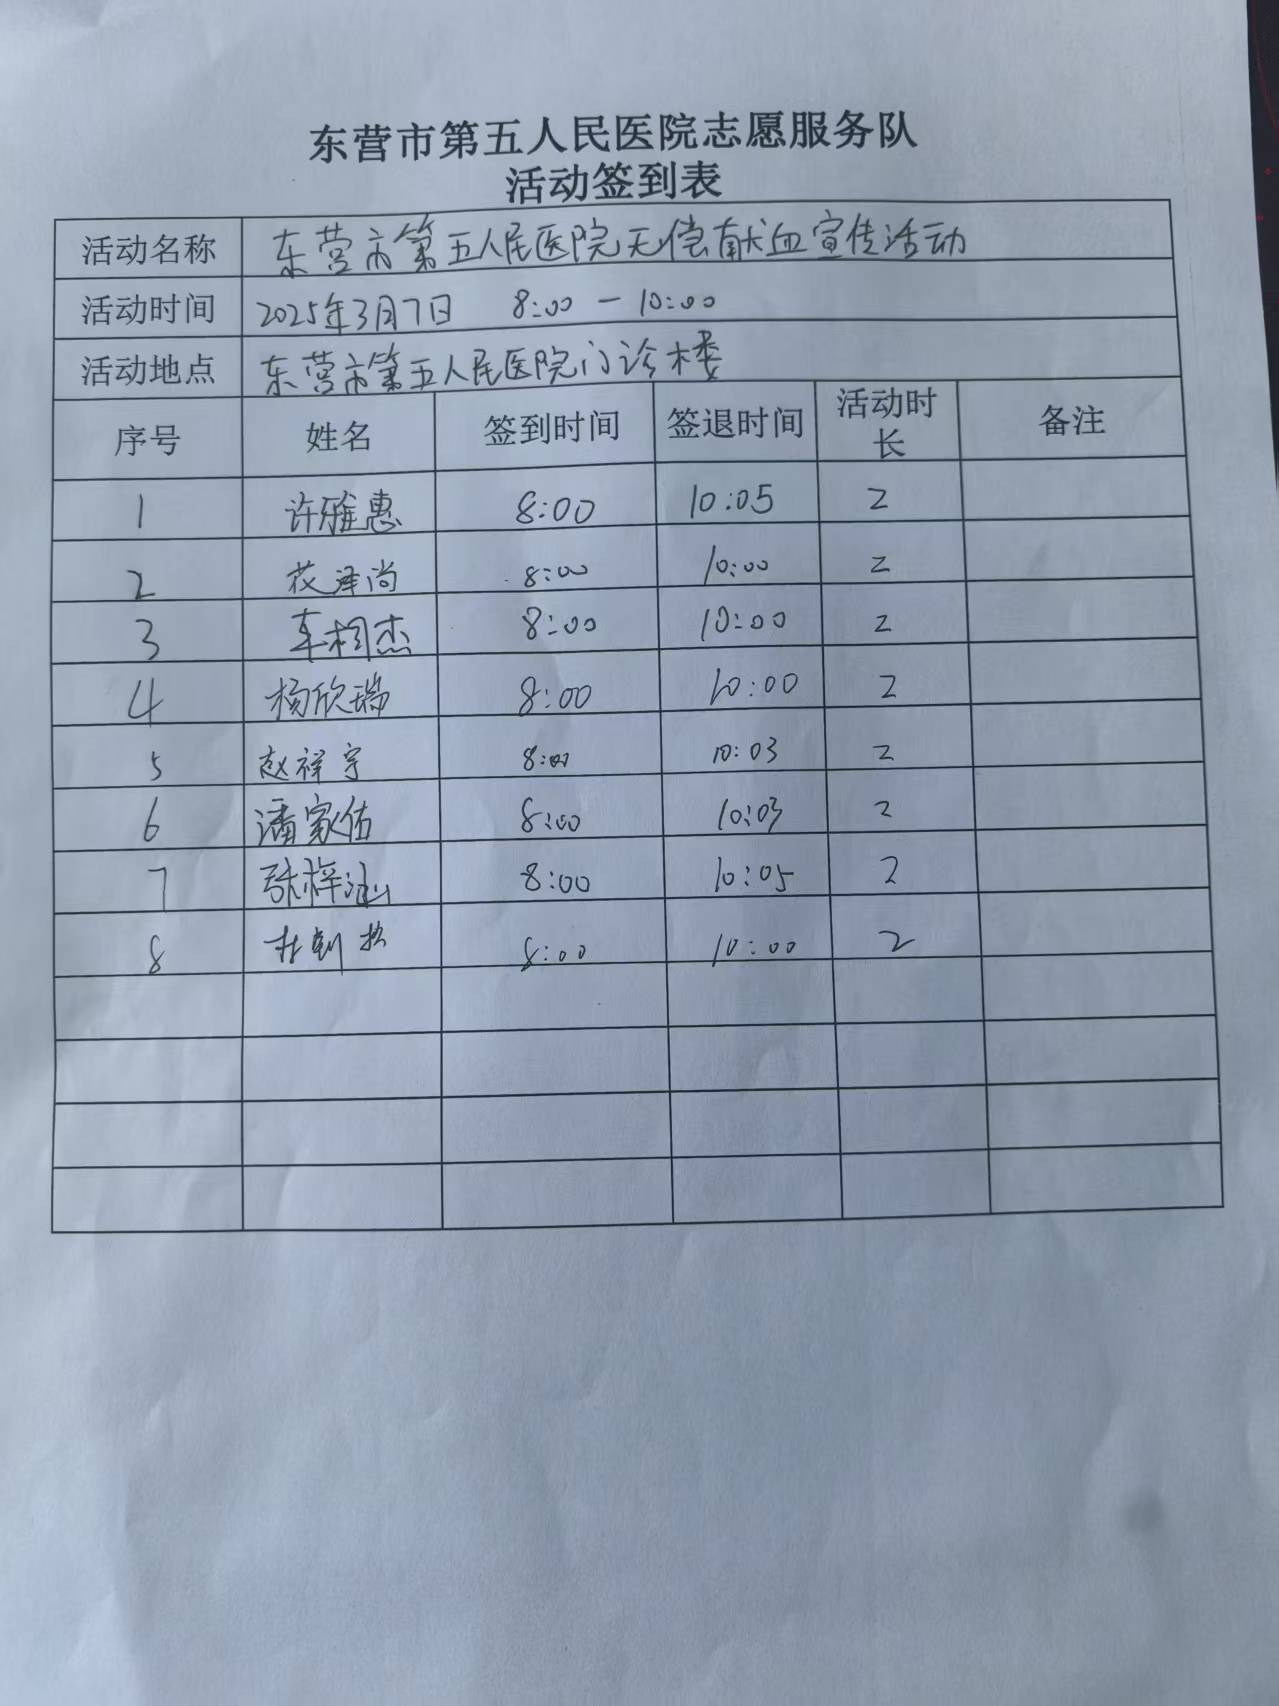 东营市第五人民医院志愿服务队
活动签到表
活动名称 东营市第五人民医院无偿献血宣传活动
活动时间 2025年3月7日 8:00 — 10:00
活动地点 东营市第五人民医院门诊楼
序号 姓名 签到时间 签退时间 活动时长 备注
1 许雅惠 8:00 10:05 2
2 泽尚 8:00 10:00 2
3 车相杰 8:00 10:00 2
4 杨欣瑞 8:00 10:00 2
5 赵祥宇 8:00 10:03 2
6 潘家佑 8:00 10:03 2
7 张梓涵 8:00 10:05 2
8 杜 8:00 10:00 2